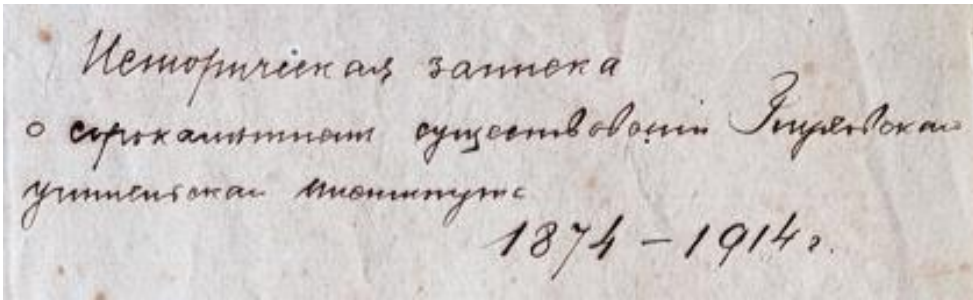 Историческая записка
о сорокалѣтнем существовании Глуховскаго
учительскаго института
1874 – 1914 г.